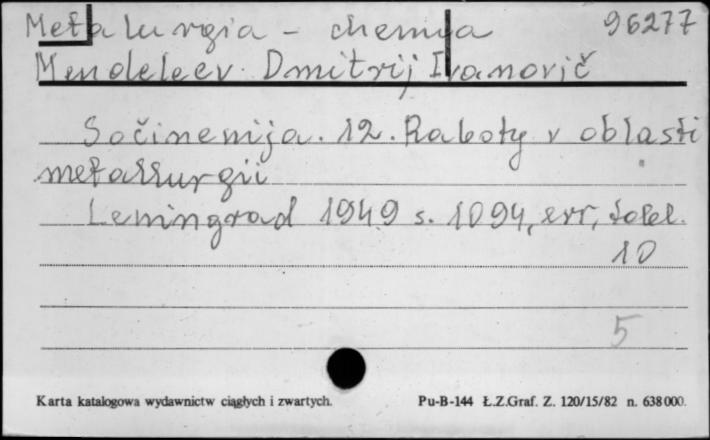 Metalurgia - chemia 96277
Mendeleev Dmitrij Ivanovič
Sočinenija. 12. Raboty v oblasti
metallurgii
Leningrad 1949 s. 1094, err, tabel.
10
5
Karta katalogowa wydawnictw ciągłych i zwartych. Pu-B-144 Ł.Z.Graf. Z. 120/15/82 n. 638000.